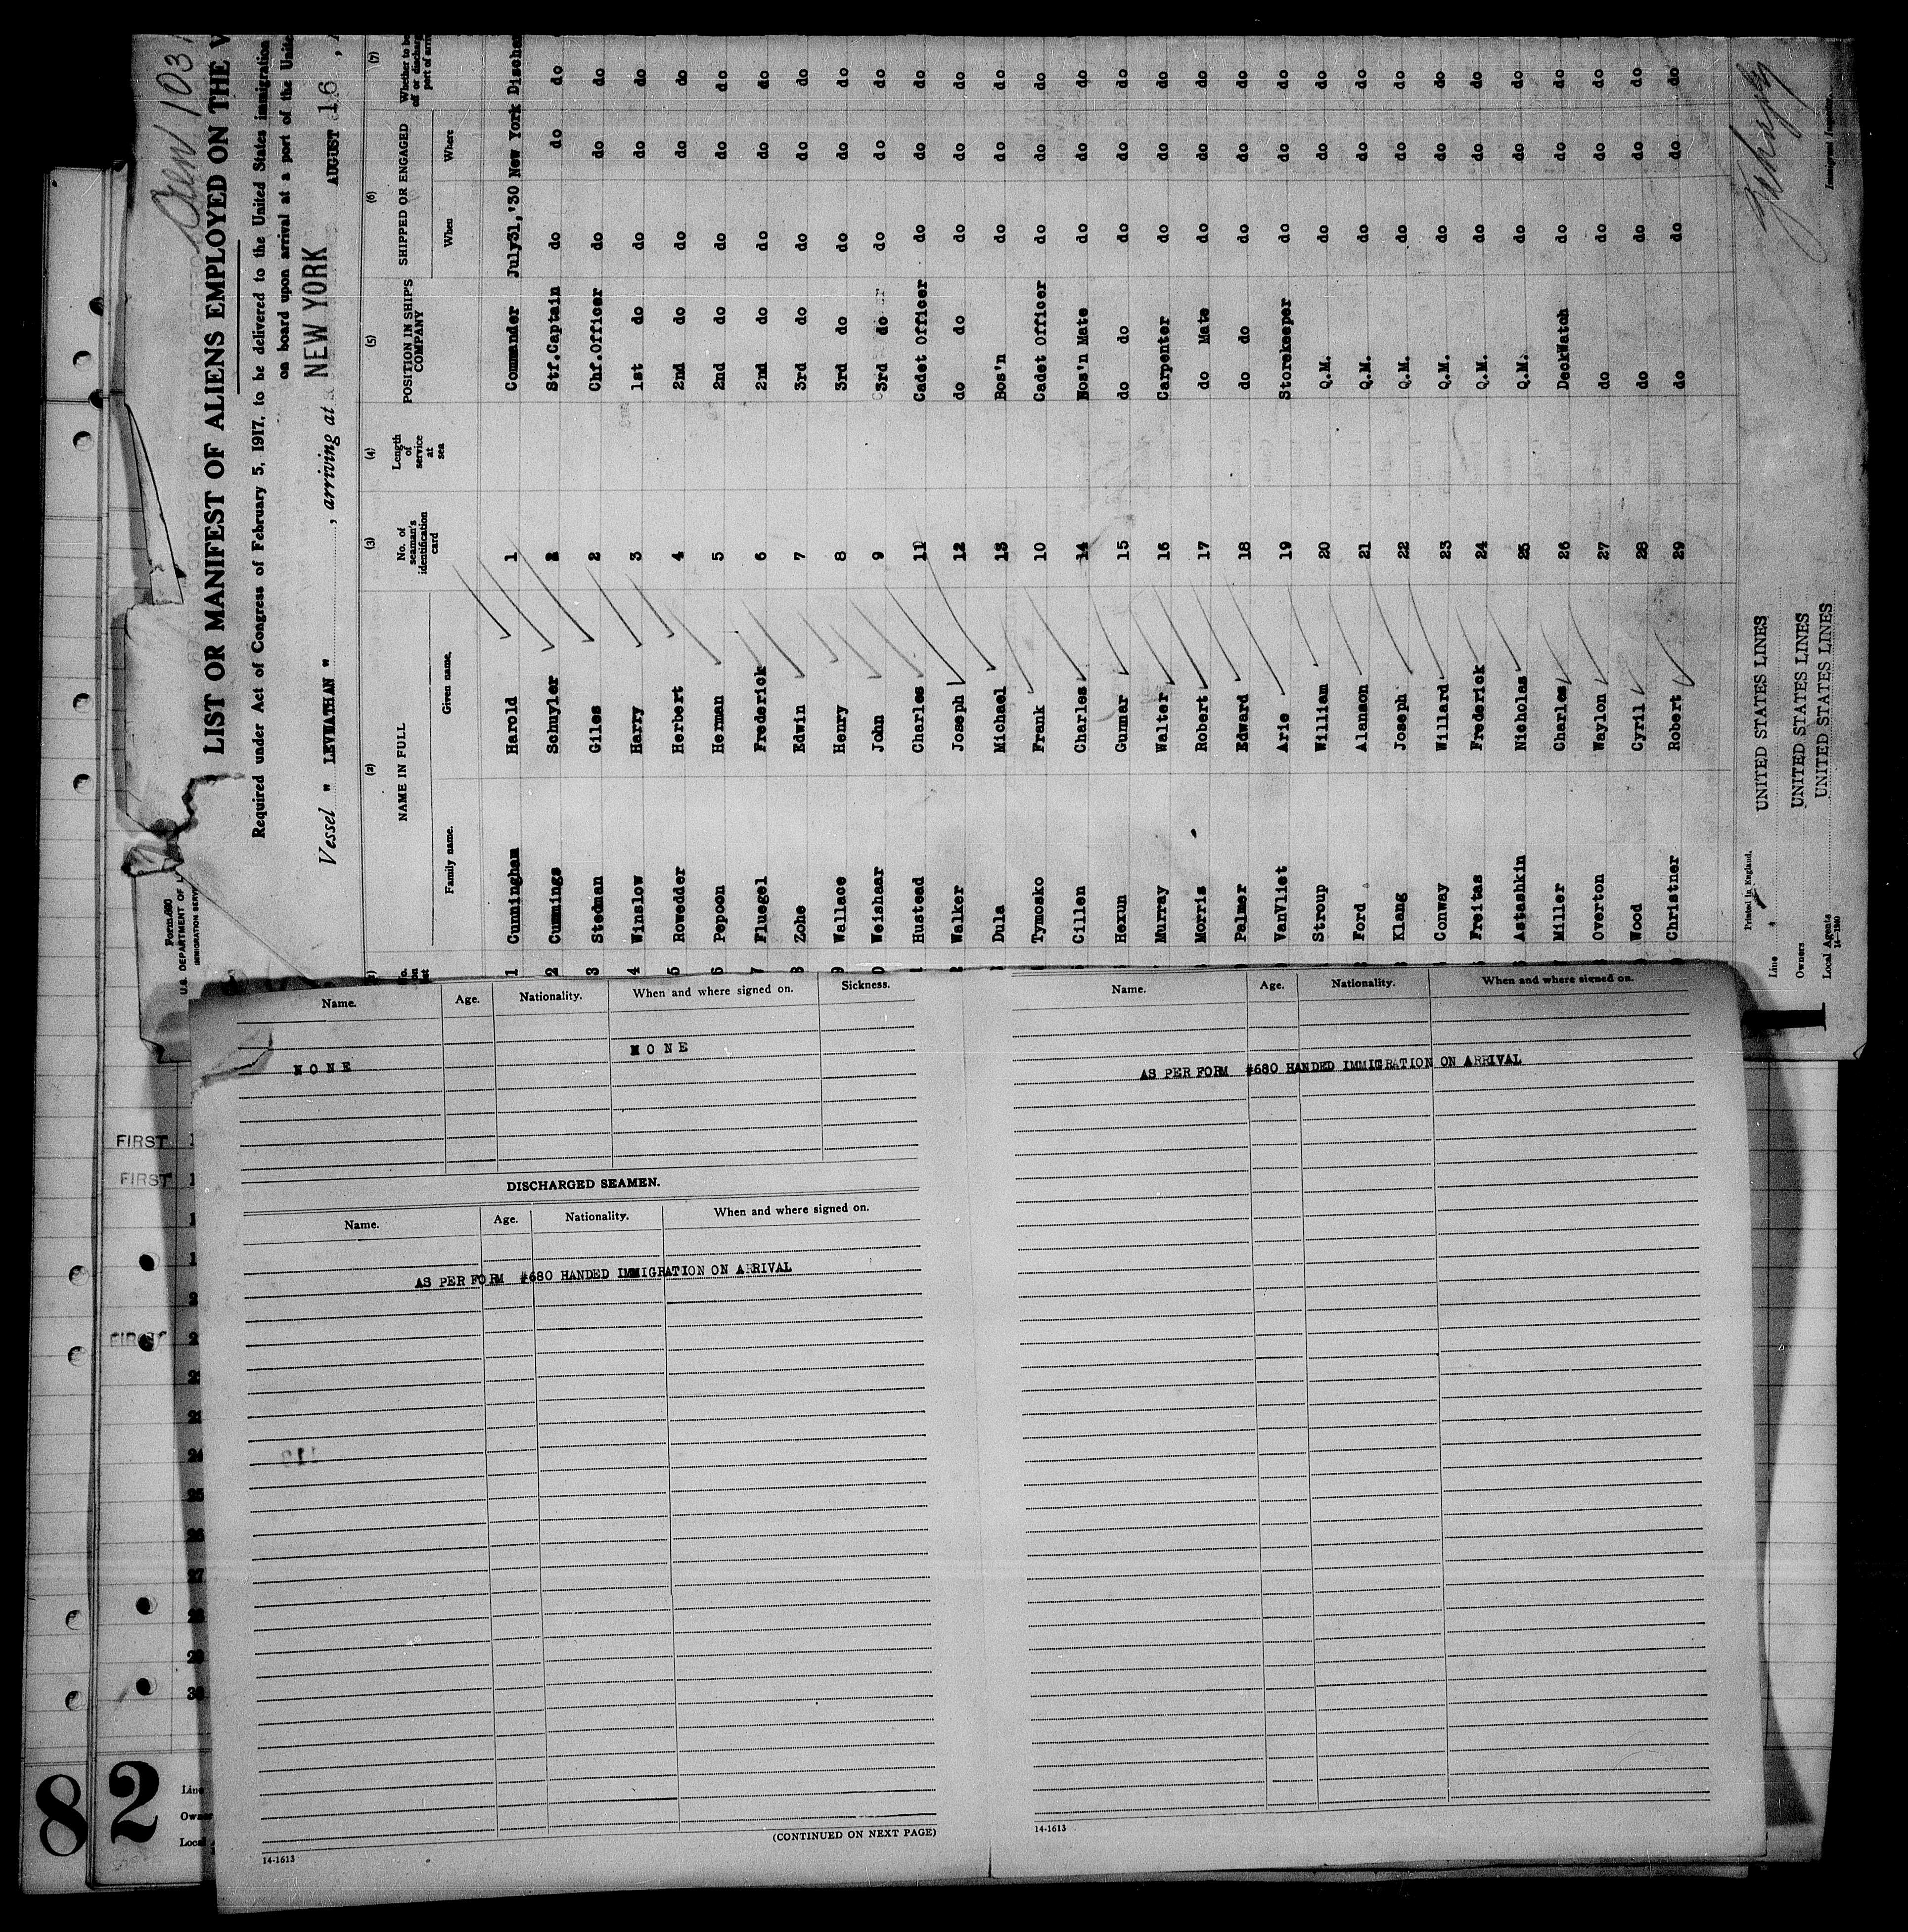 LIST OR MANIFEST OF ALIENS EMPLOYED ON THE
Required under Act of Congress of February 5, 1917, to be delivered to the United States immigration
on board upon arrival at a port of the Unite
Vessel " LEVIATHAN " , arriving at NEW YORK AUGUST 16 ,
Form 680
U.S. DEPARTMENT OF L
IMMIGRATION SERV
(2) (3) (4) (5) (6) (7)
NAME IN FULL No. of seaman's identification card Length of service at sea POSITION IN SHIP'S COMPANY SHIPPED OR ENGAGED Whether to be
Family name. Given name. When Where
1 Cunningham Harold 1 Commander July31,'30 New York Dischar
2 Cummings Schuyler 2 Stf.Captain do do do
3 Stedman Giles 2 Chf.Officer do do do
4 Winslow Harry 3 1st do do do do
5 Rowedder Herbert 4 2nd do do do do
6 Pepoon Herman 5 2nd do do do do
7 Fluegel Frederick 6 2nd do do do do
8 Zohe Edwin 7 3rd do do do do
9 Wallace Henry 8 3rd do do do do
0 Weishaar John 9 3rd do do do do
1 Hustead Charles 11 Cadet Officer do do do
2 Walker Joseph 12 do do do do do
Dula Michael 13 Bos'n do do do
Tymosko Frank 10 Cadet Officer do do do
Cillen Charles 14 Bos'n Mate do do do
Hexun Gunnar 15 do do do do do
Murray Walter 16 Carpenter do do do
Morris Robert 17 do Mate do do do
Palmer Edward 18 do do do do do
VanVliet Arie 19 Storekeeper do do do
Stroup William 20 Q.M. do do do
Ford Alanson 21 Q.M. do do do
Klang Joseph 22 Q.M. do do do
Conway Willard 23 Q.M. do do do
Freitas Frederick 24 Q.M. do do do
Astashkin Nicholas 25 Q.M. do do do
Miller Charles 26 DeckWatch do do do
Overton Waylon 27 do do do do
Wood Cyril 28 do do do do
Christner Robert 29 do do do do
Printed in England.
Line UNITED STATES LINES
Owners UNITED STATES LINES
Local Agents UNITED STATES LINES
14-1240
Immigrant Inspector.
Name. Age. Nationality. When and where signed on. Sickness.
NONE NONE
DISCHARGED SEAMEN.
Name. Age. Nationality. When and where signed on.
AS PER FORM #680 HANDED IMMIGRATION ON ARRIVAL
(CONTINUED ON NEXT PAGE)
14-1613
Name. Age. Nationality. When and where signed on.
AS PER FORM #680 HANDED IMMIGRATION ON ARRIVAL
14-1613
FIRST
FIRST
FIRST
24
25
26
27
28
29
30
Line
Owner
Local
8
2